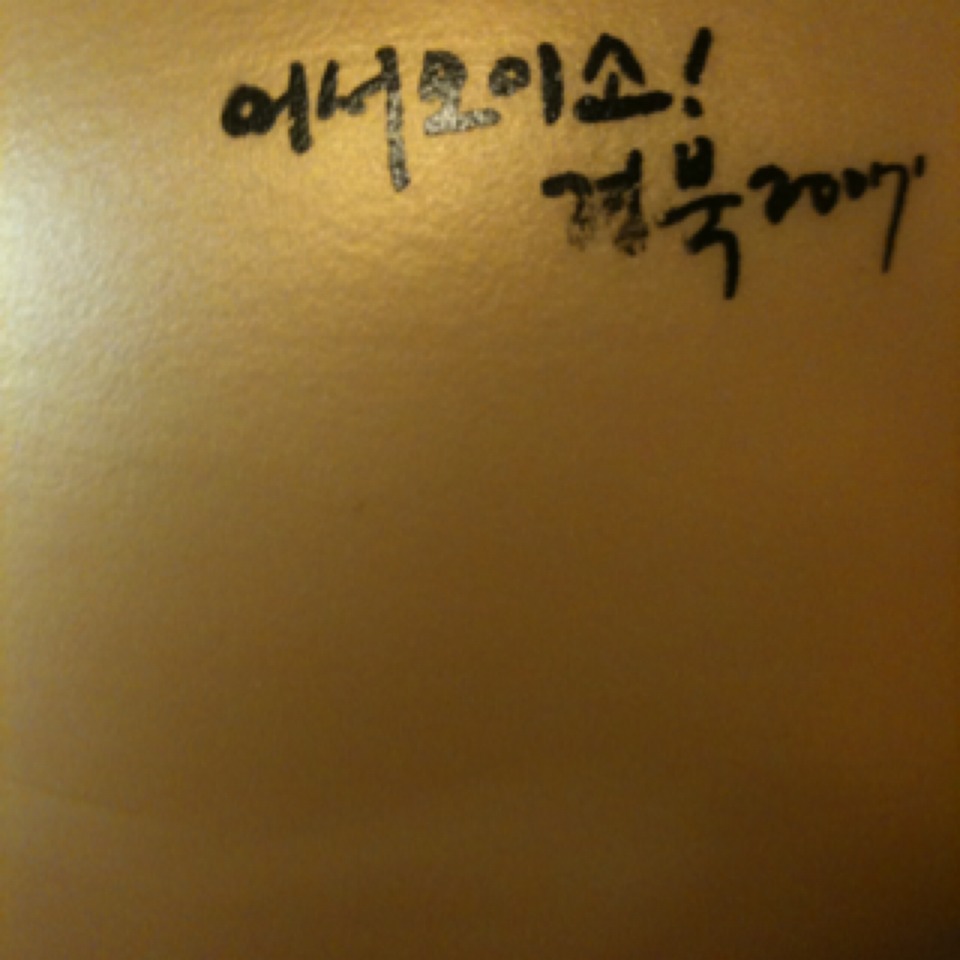 어서오이소!
경북2007